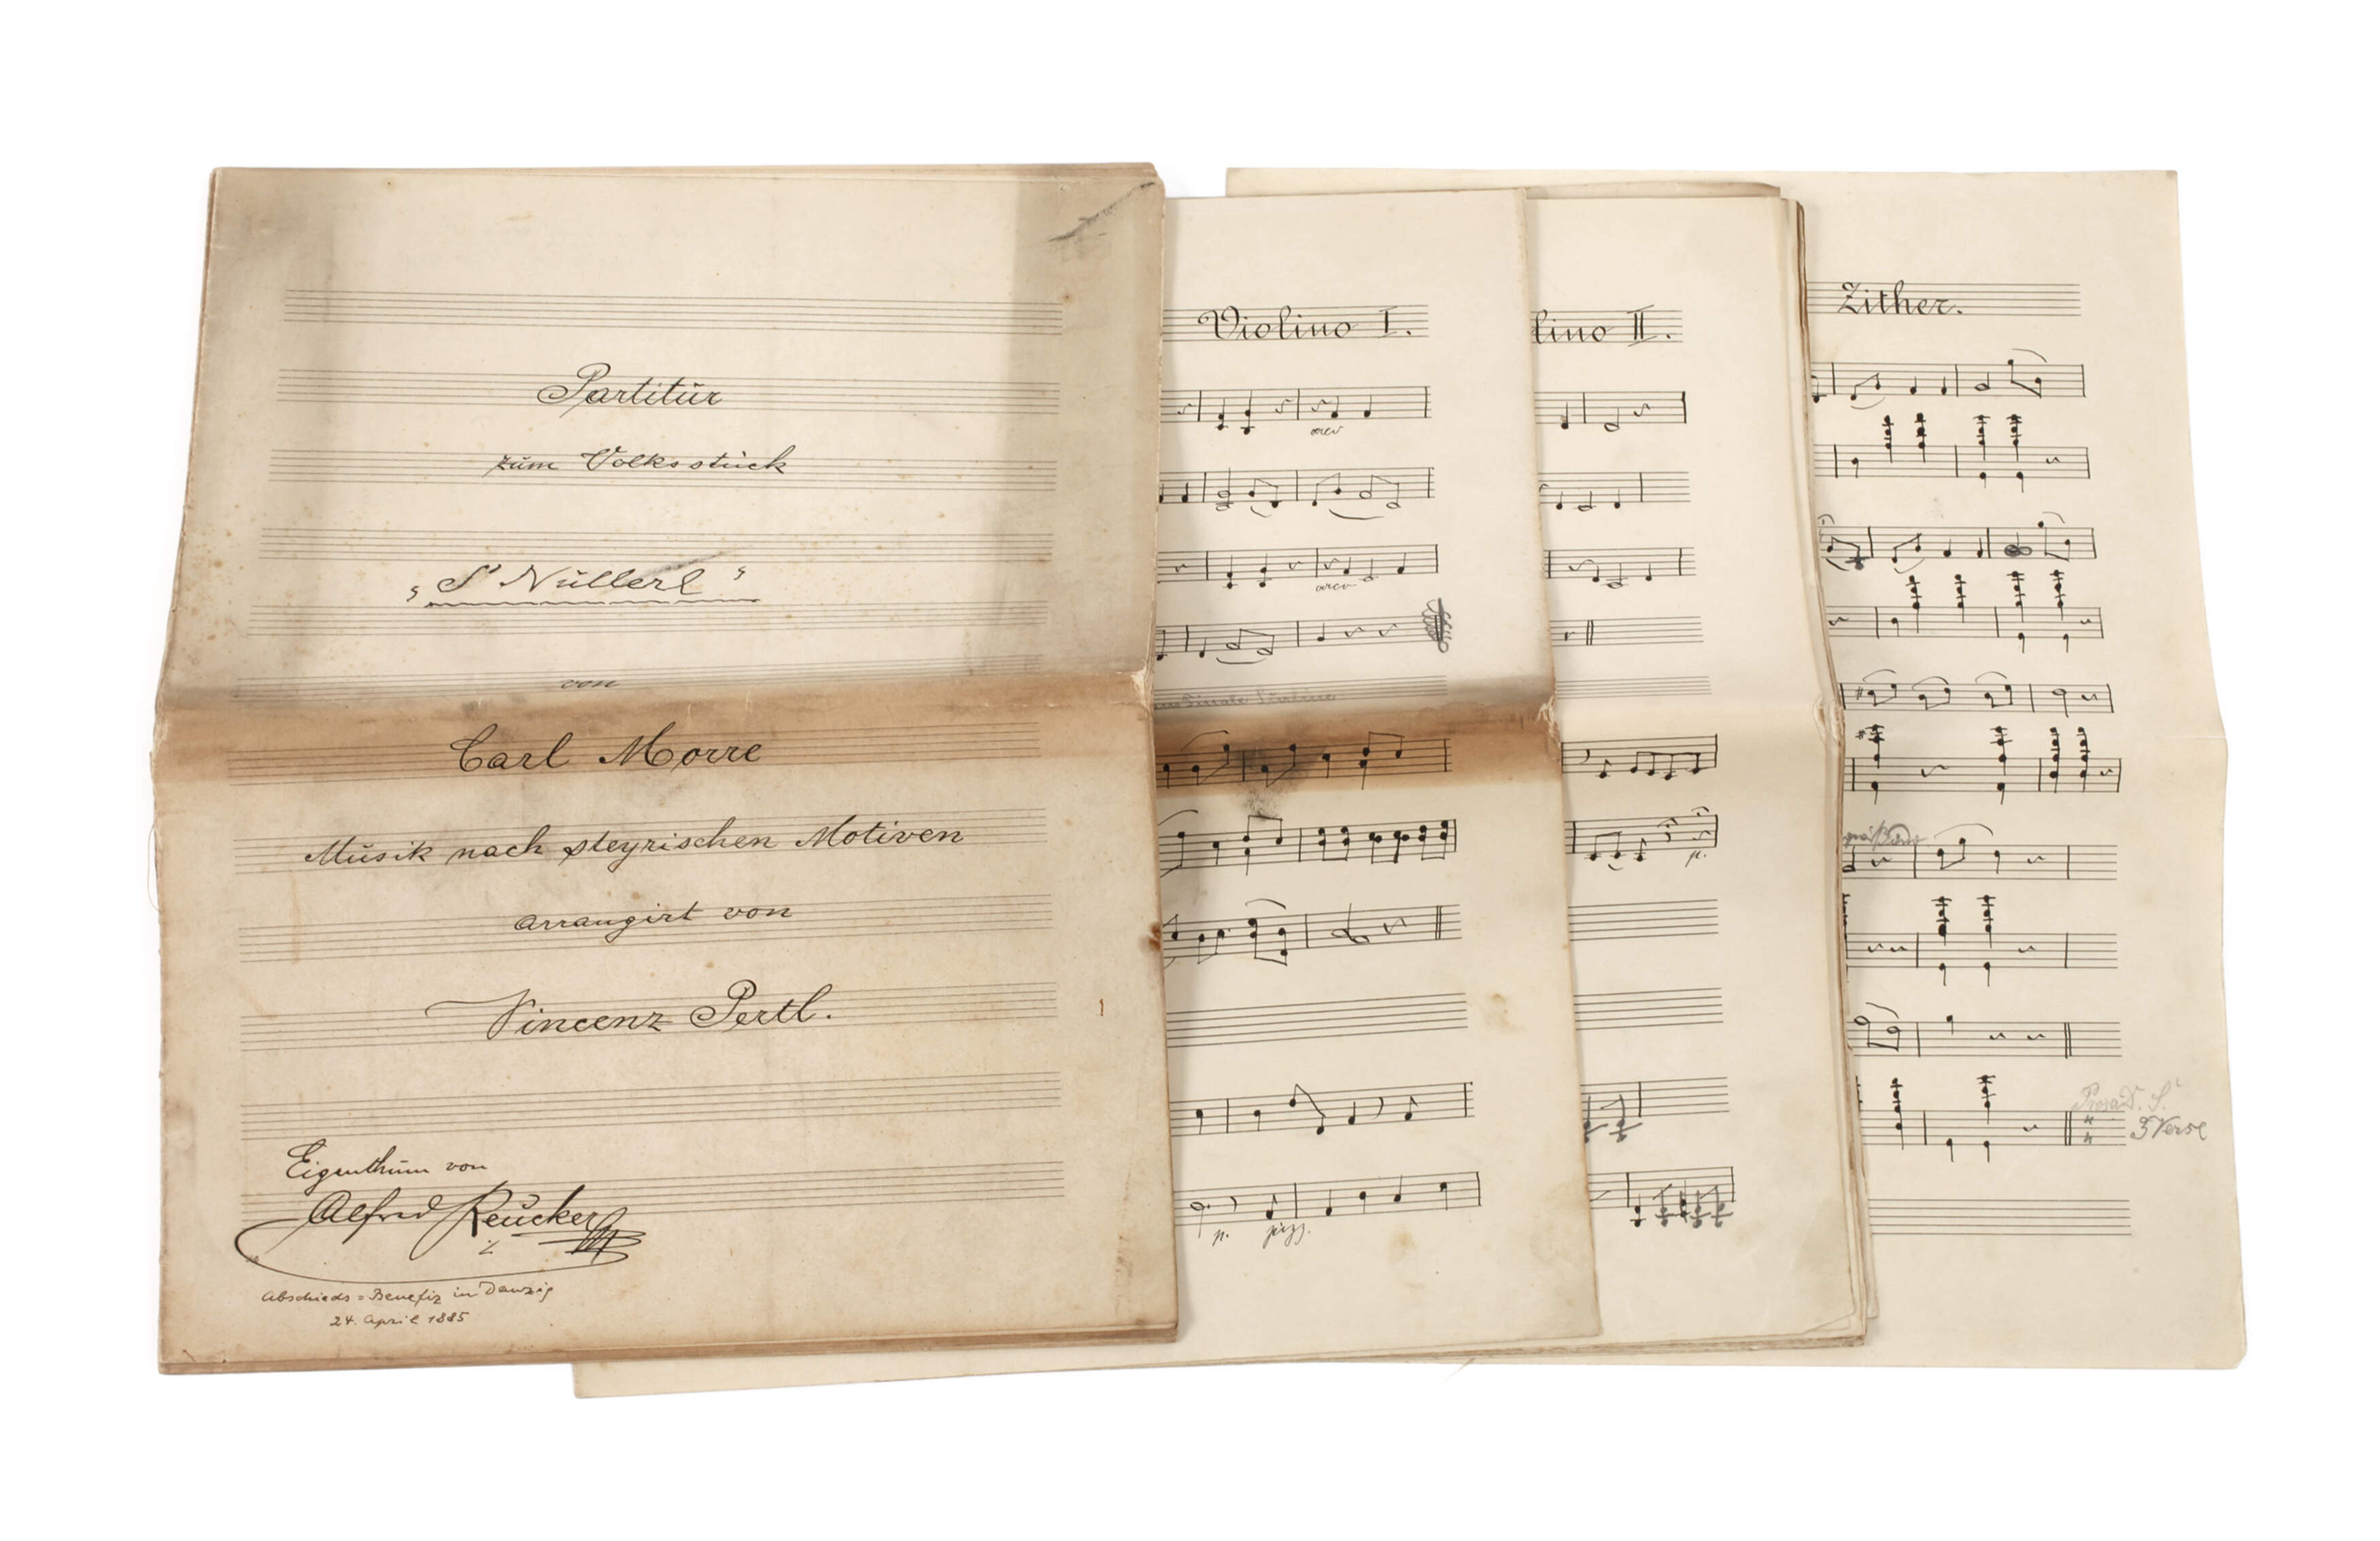 Partitur
zum Volksstück
„S' Nullerl"
von
Carl Morre
Musik nach steyrischen Motiven
arrangirt von
Vincenz Pertl.
Eigenthum von
Alfred Reucker
Abschieds=Benefiz in Danzig
24. April 1885
Violino I.
arco
arco
p.
pizz.
lino II.
p.
Zither.
Prosa D. S.
" " 3 Verse